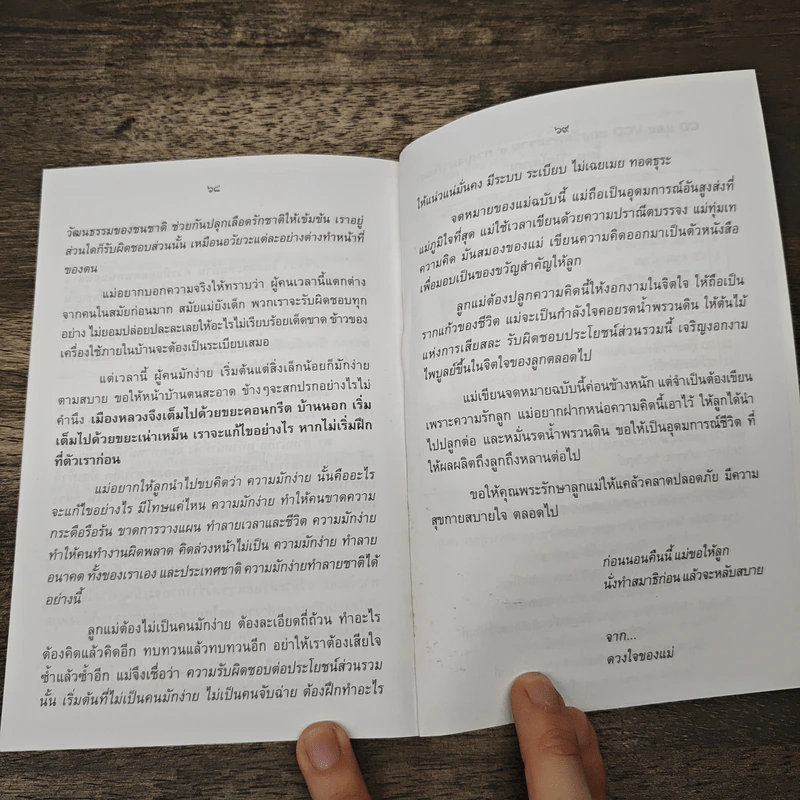 ๖๘
วัฒนธรรมของชนชาติ ช่วยกันปลูกเลือดรักชาติให้เข้มข้น เราอยู่
ส่วนใดก็รับผิดชอบส่วนนั้น เหมือนอวัยวะแต่ละอย่างต่างทำหน้าที่
ของตน
แม่อยากบอกความจริงให้ทราบว่า ผู้คนเวลานี้แตกต่าง
จากคนในสมัยก่อนมาก สมัยแม่ยังเด็ก พวกเราจะรับผิดชอบทุก
อย่าง ไม่ยอมปล่อยปละละเลยให้อะไรไม่เรียบร้อยเด็ดขาด ข้าวของ
เครื่องใช้ภายในบ้านจะต้องเป็นระเบียบเสมอ
แต่เวลานี้ ผู้คนมักง่าย เริ่มต้นแต่สิ่งเล็กน้อยก็มักง่าย
ตามสบาย ขอให้หน้าบ้านตนสะอาด ข้างๆจะสกปรกอย่างไรไม่
คำนึง เมืองหลวงจึงเต็มไปด้วยขยะคอนกรีต บ้านนอก เริ่ม
เต็มไปด้วยขยะเน่าเหม็น เราจะแก้ไขอย่างไร หากไม่เริ่มฝึก
ที่ตัวเราก่อน
แม่อยากให้ลูกนำไปขบคิดว่า ความมักง่าย นั้นคืออะไร
จะแก้ไขอย่างไร มีโทษแค่ไหน ความมักง่าย ทำให้คนขาดความ
กระตือรือร้น ขาดการวางแผน ทำลายเวลาและชีวิต ความมักง่าย
ทำให้คนทำงานผิดพลาด คิดล่วงหน้าไม่เป็น ความมักง่าย ทำลาย
อนาคต ทั้งของเราเอง และประเทศชาติ ความมักง่ายทำลายชาติได้
อย่างนี้
ลูกแม่ต้องไม่เป็นคนมักง่าย ต้องละเอียดถี่ถ้วน ทำอะไร
ต้องคิดแล้วคิดอีก ทบทวนแล้วทบทวนอีก อย่าให้เราต้องเสียใจ
ซ้ำแล้วซ้ำอีก แม่จึงเชื่อว่า ความรับผิดชอบต่อประโยชน์ส่วนรวม
นั้น เริ่มต้นที่ไม่เป็นคนมักง่าย ไม่เป็นคนจับฉ่าย ต้องฝึกทำอะไร
๖๙
ให้แน่วแน่มั่นคง มีระบบ ระเบียบ ไม่เฉยเมย ทอดธุระ
จดหมายของแม่ฉบับนี้ แม่ถือเป็นอุดมการณ์อันสูงส่งที่
แม่ภูมิใจที่สุด แม่ใช้เวลาเขียนด้วยความปราณีตบรรจง แม่ทุ่มเท
ความคิด มันสมองของแม่ เขียนความคิดออกมาเป็นตัวหนังสือ
เพื่อมอบเป็นของขวัญสำคัญให้ลูก
ลูกแม่ต้องปลูกความคิดนี้ให้งอกงามในจิตใจ ให้ถือเป็น
รากแก้วของชีวิต แม่จะเป็นกำลังใจคอยรดน้ำพรวนดิน ให้ต้นไม้
แห่งการเสียสละ รับผิดชอบประโยชน์ส่วนรวมนี้ เจริญงอกงาม
ไพบูลย์ขึ้นในจิตใจของลูกตลอดไป
แม่เขียนจดหมายฉบับนี้ค่อนข้างหนัก แต่จำเป็นต้องเขียน
เพราะความรักลูก แม่อยากฝากหน่อความคิดนี้เอาไว้ ให้ลูกได้นำ
ไปปลูกต่อ และหมั่นรดน้ำพรวนดิน ขอให้เป็นอุดมการณ์ชีวิต ที่
ให้ผลผลิตถึงลูกถึงหลานต่อไป
ขอให้คุณพระรักษาลูกแม่ให้แคล้วคลาดปลอดภัย มีความ
สุขกายสบายใจ ตลอดไป
ก่อนนอนคืนนี้ แม่ขอให้ลูก
นั่งทำสมาธิก่อน แล้วจะหลับสบาย
จาก...
ดวงใจของแม่